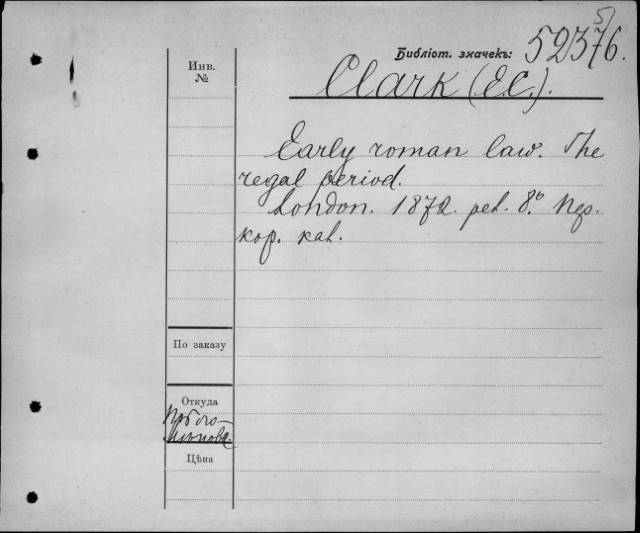 Библіот. значекъ: 52376.
5
Инв.
№
Clark (E.C.).
Early roman law. The
regal period.
London. 1872. pet. 8.° Пер.
кор. каl.
По заказу
Откуда
Цѣна